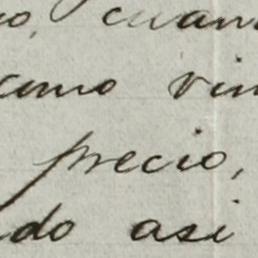 o, cuan
como vin
precio,
do asi